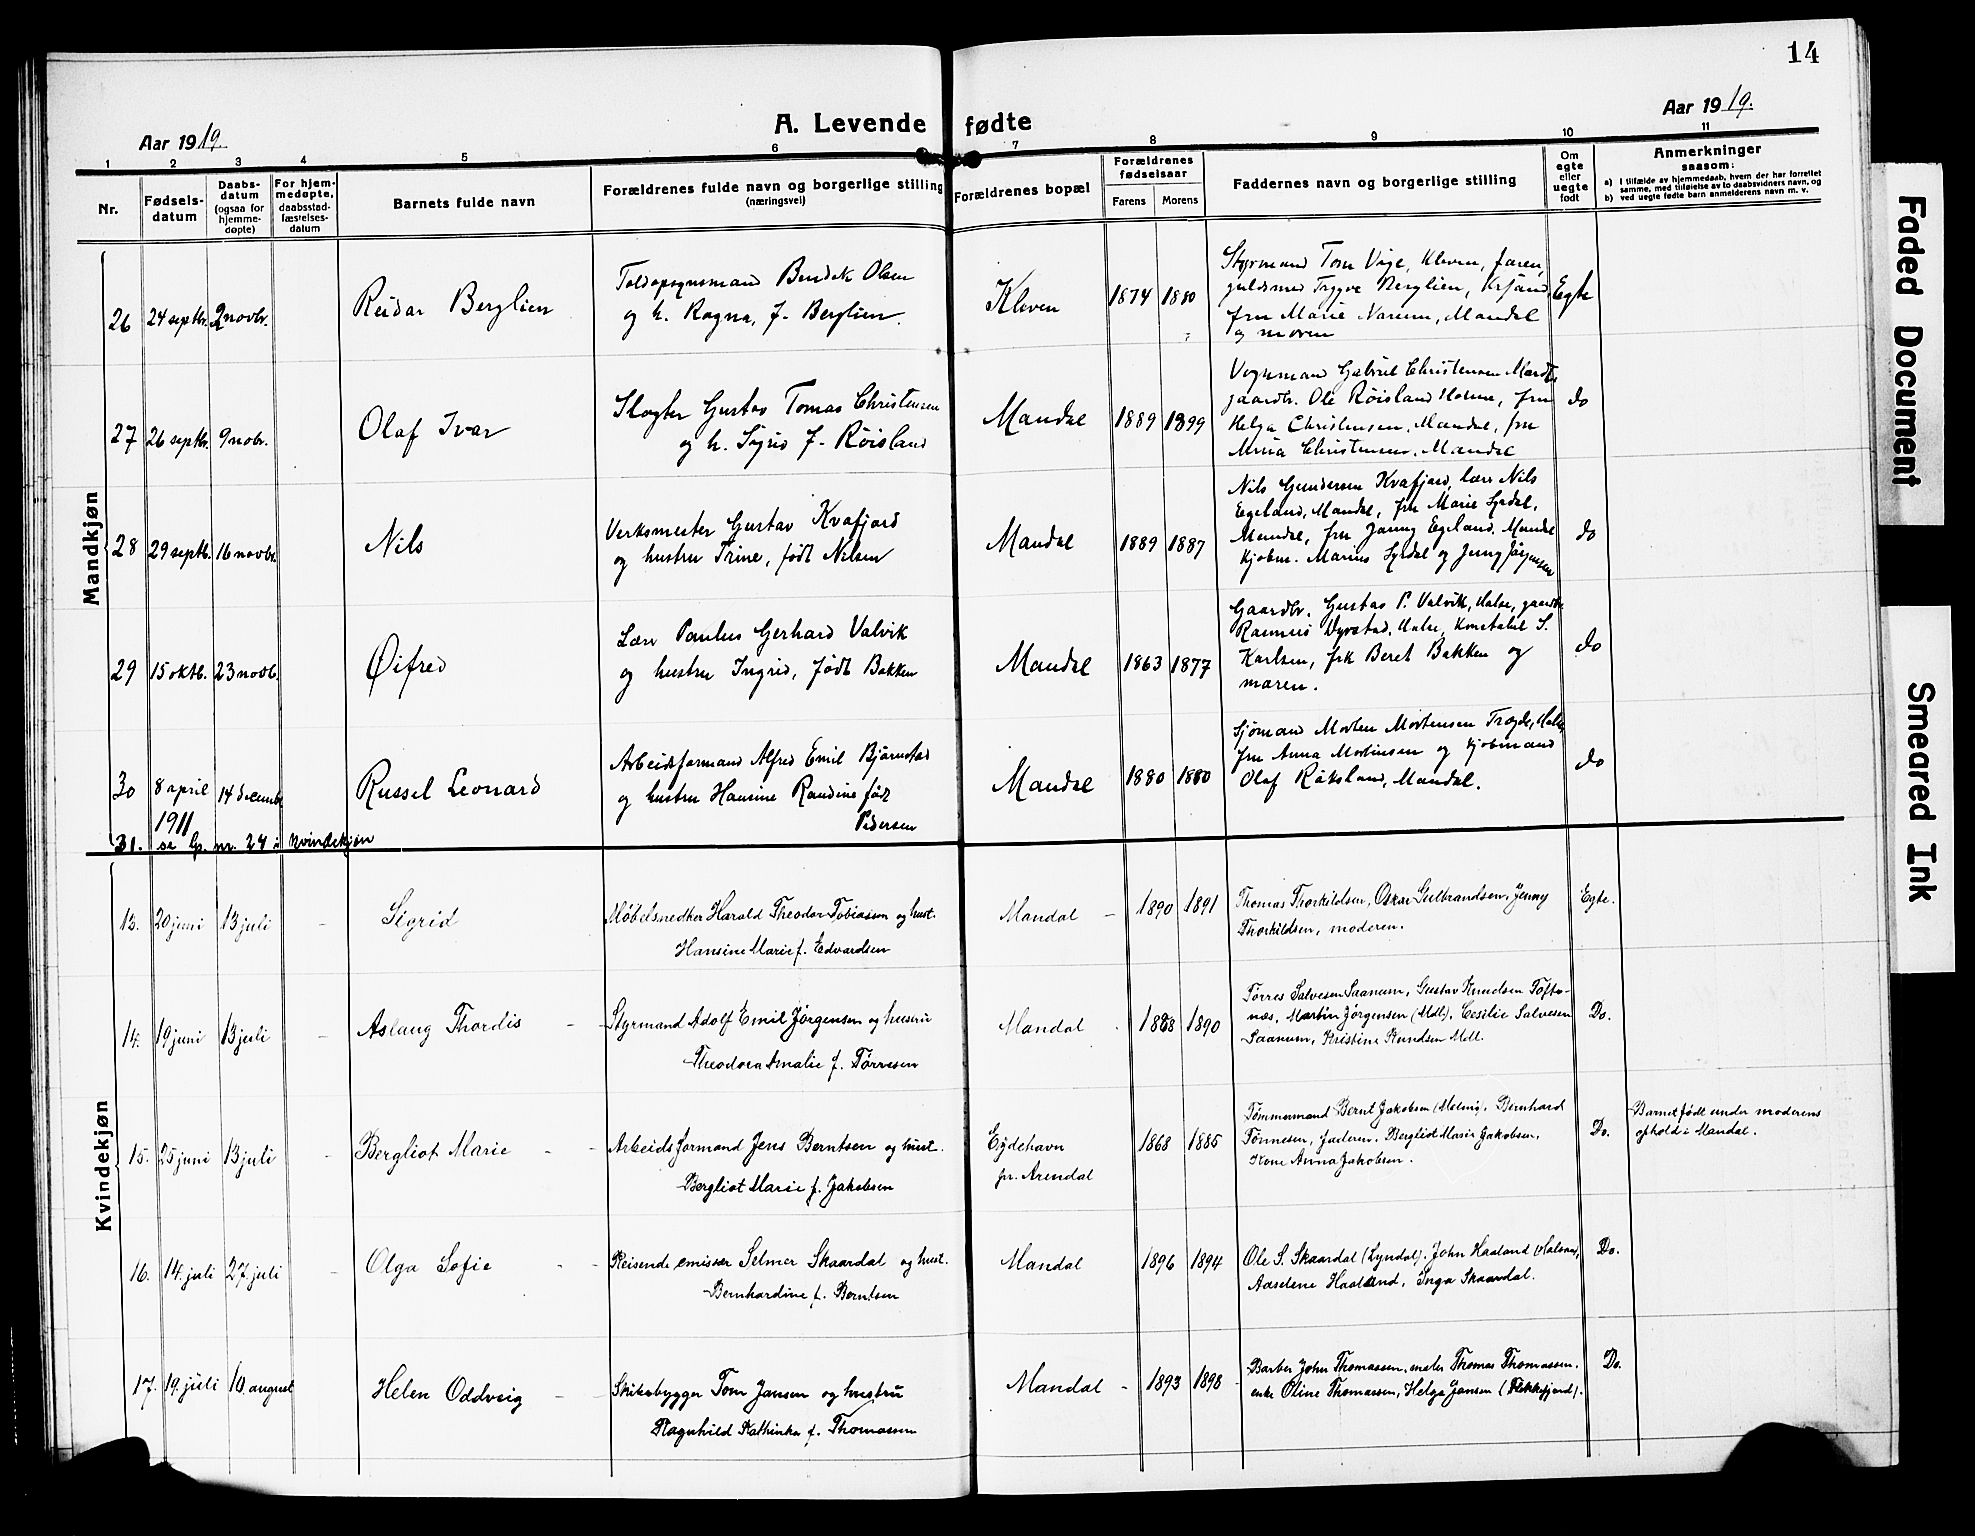 14
Aar 1919.
A. Levende fødte
Aar 1919.
1 2 3 4 5 6 7 8 9 10 11
Nr.
Fødsels-
datum
Daabs-
datum
(ogsaa for
hjemme-
døpte)
For hjem-
medøpte,
daabsstad-
fæstelses-
datum
Barnets fulde navn
Forældrenes fulde navn og borgerlige stilling
(næringsvei)
Forældrenes bopæl
Forældrenes
fødselsaar
Farens Morens
Faddernes navn og borgerlige stilling
Om
egte
eller
uegte
født
Anmerkninger
saasom:
a) I tilfælde av hjemmedaab, hvem der har forrettet
samme, med tilføielse av to daabsvidners navn, og
b) ved uegte fødte barn anmelderens navn m. v.
Mandkjøn
26 24 septbr. 2 novbr. Reidar Berglien
Toldopsynsmand Bendik Olsen
og h. Ragna, f. Berglien.
Kleven 1874 1880
Styrmand Tom Vige, Kleven, faren,
guldsmed Trygve Berglien, Krsand,
fru Marie Narum, Mandal
og moren
Egte
27 26 septbr. 9 nobr. Olaf Ivar
Slagter Gustav Tomas Christensen
og h. Sigrid f. Røisland
Mandal 1889 1899
Vognmand Gabriel Christensen
gaardbr. Ole Røisland Holum, fru
Helga Christensen, Mandal, fru
Christensen, Mandal
do
28 29 septb. 16 novbr. Nils
Verksmester Gustav Kvafjord
og hustru Trine, født Nilsen
Mandal 1889 1887
Nils Gundersen Kvafjord, lærer Nils
Egeland, Mandal, fru Marie Lysdal,
Mandal, fru Janny Egeland, Mandal
kjøbm. Marius Lysdal og Jenny Jørgensen
do
29 15 oktb. 23 novb. Øifred
Lærer Paulus Gerhard Valvik
og hustru Ingrid, født Bakken
Mandal 1863 1877
Gaardbr. Gustav P. Valvik, Halse, gaardbr.
Rasmus Dyrstad, Halse, konstabel S.
Karlsen, frk Beret Bakken og
moren.
do
30 8 april 1911 14 decembr Russel Leonard
Arbeidsformand Alfred Emil Bjørnstad
og hustru Hansine Randine født
Pedersen
Mandal 1880 1880
Sjømand Morten Mortensen Tregde, Halse,
fru Anna Mortensen og kjøbmand
Olaf Røksland, Mandal.
do
31. se lp. nr. 24 i kvindekjøn
Kvindekjøn
13. 20 juni 13 juli - Sigrid
Møbelsnedker Harald Theodor Tobiassen og hust.
Hansine Marie f. Edvardsen
Mandal - 1890 1891
Thomas Thorkildsen, Oskar Gulbrandsen, Jenny
Thorkildsen, moderen.
Egte.
14. 19 juni 13 juli - Aslaug Thordis -
Styrmand Adolf Emil Jørgensen og hustru
Theodora Amalie f. Tørresen
Mandal - 1888 1890
Tørres Salvesen Saanum, Gustav Knudsen Tofte-
næs, Martin Jørgensen (Mdl), Cesilie Salvesen
Saanum, Kristine Knudsen Mdl.
Do.
15. 25 juni 13 juli - Bergliot Marie - -
Arbeidsformand Jens Berntsen og hust.
Bergliot Marie f. Jakobsen
Eydehavn
pr. Arendal
1868 1885
Tømmermand Bernt Jakobsen (Malmø), Bernhard
Tønnesen, faderen, Bergliot Marie Jakobsen,
Kone Anna Jakobsen.
Do.
Barnet født under moderens
ophold i Mandal.
16. 14. juli 27. juli - Olga Sofie - -
Reisende emissær Selmer Skaardal og hust.
Bernhardine f. Berntsen
Mandal 1896 1894
Ole S. Skaardal (Lyndal), John Haaland (Halsaa),
Aaselene Haaland, Inga Skaardal.
Do.
17. 19. juli 10. august Helen Oddveig - -
Skibsbygger Tom Jansen og hustru
Ragnhild Kathinka f. Thomassen
Mandal - 1893 1898 -
Barber John Thomassen, maler Thomas Thomassen,
enke Oline Thomassen, Helga Jansen (Flekkefjord).
Do.
Faded Document
Smeared Ink